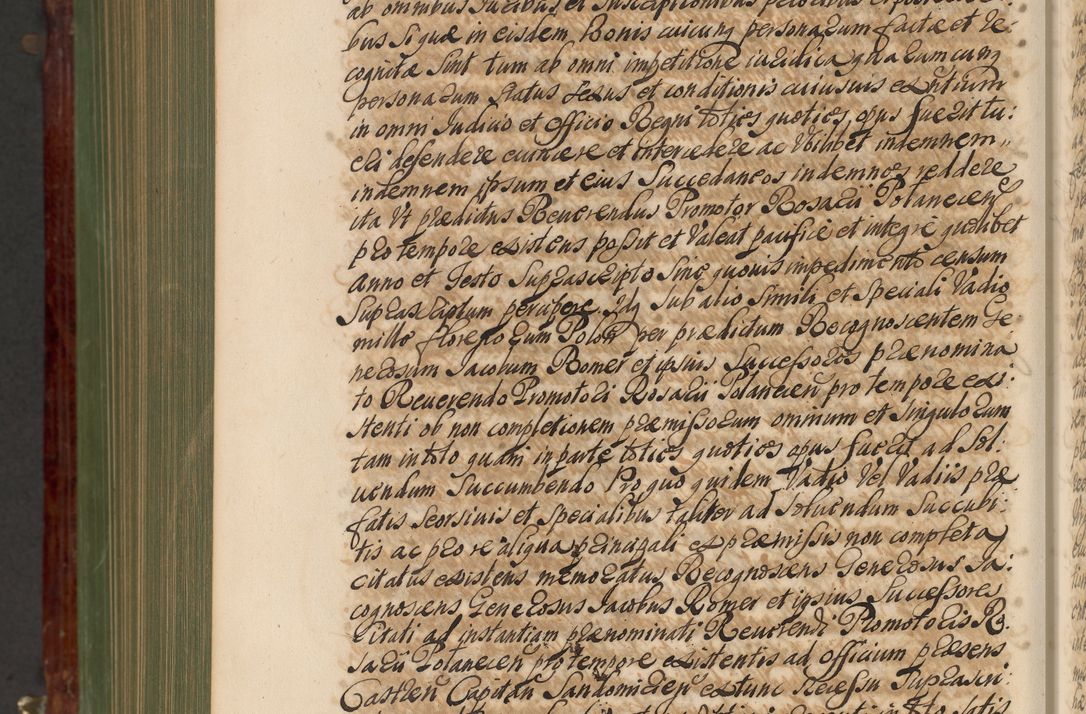 ab omnibus Juribus et susceptionibus
bus si quæ in eisdem Bonis cuicunq personarum factæ et re
cognitæ sint tum ab omni impetitione iuridica quarumcunq
personarum status sexus et conditionis cuiusuis existentium
in omni Judicio et Officio Regni toties quoties opus fuerit tu:
eri defendere euincere et intercedere ac Vbilibet indemnem
indemnem ipsum et eius Succedaneos indemnes reddere
ita Vt prædictus Reuerendus Promotor Rosarii Polanecen
pro tempore existens possit et Valeat pacifice et integre quolibet
anno et festo suprascripto sine quouis impedimento censum
suprascriptum percipere Idq sub alio simili et speciali Vadio
mille florenorum Polon per prædictum Recognoscentem Ge
nerosum Jacobum Romer et ipsius Successores prænomina
to Reuerendo Promotori Rosarii Polanecen pro tempore exi:
stenti ob non completionem præmissorum omnium et singulorum
tam in toto quam in parte toties quoties opus fuerit ad sol:
uendum succumbendo Pro quo quidem Vadio Vel Vadiis præ
fatis seorsiuis et specialibus taliter ad soluendum succubi:
tis ac pro re aliqua principali ex præmissis non completa
citatus existens memoratus Recognoscens Generosus Ja
cognoscens Generosus Jacobus Romer et ipsius Successores
Citati ad instantiam prænominati Reuerendi Promotoris Ro
sarii Polanecen pro tempore existentis ad officium præsens
Castren Capitan Sandomirien extunc recessu suprascri: